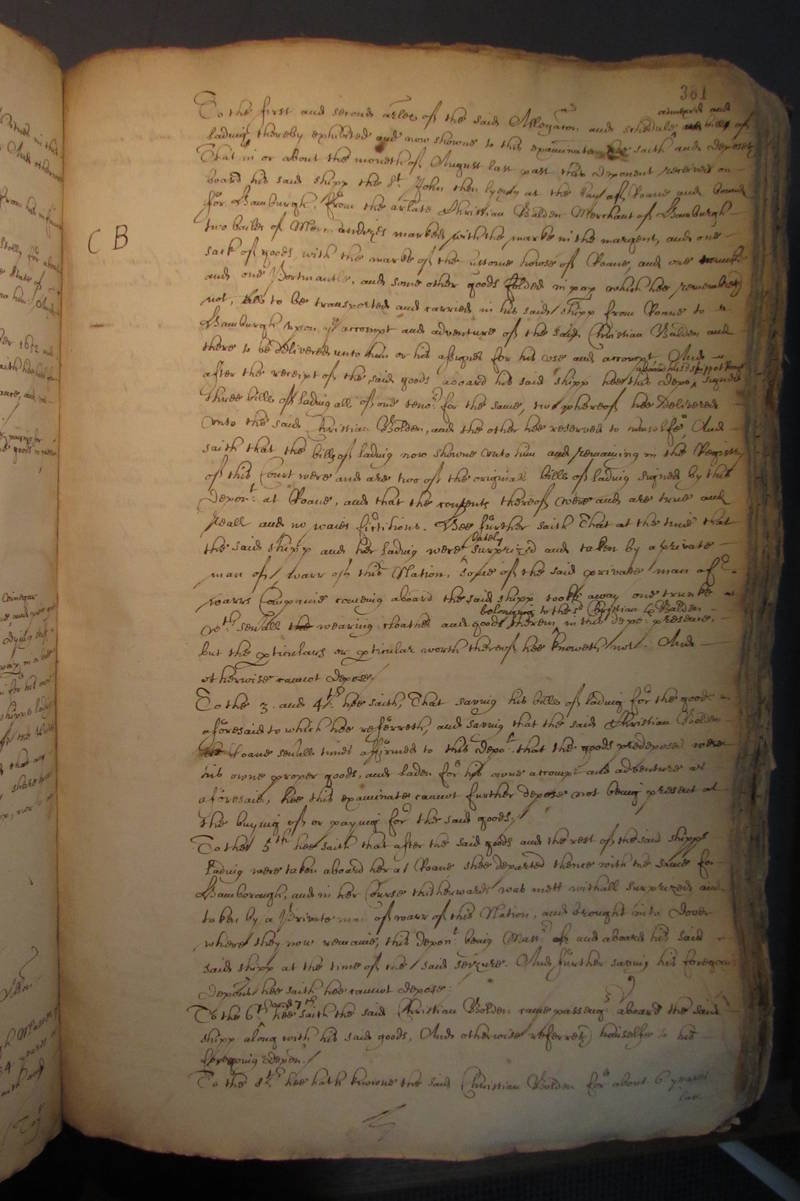 381
To the first and second arles of the said Allegaton and schedule annexed and bills of
lading thereby exhibited and now showne to this examinate hee saith and deposeth
That in or about the moneth of August last past this deponent received on
board his said shipp the St. John then lyeing at the of Roane and bound
for Hamburgh, from the arlate Christian Bolden Merchant of Hamburgh
CB
two bailes of Merchandizes marked with the marke in the margent, and one
sack of goods, with the marke of the Custome howse of Roane, and one trunke
and one Portmantle, and some other goods folded in which hee remembreth
not, to be transported and carried in his said shipp from Roane to
Hamburgh upon ye accompt and adventure of the said Christian Bolden and
there to be delivered unto him or his assignes for his use and accompt. And
after the receipt of the said goods aboard his said shipp hee this depot signed
three bills of lading all of one tenor for the same, two whereof hee delivered
unto the said Christian Bolden, and the other hee reserved to himselfe, And
saith that the bills of lading now showne unto him and remaining in the Registry
of this Court were and are two of the originall bills of lading signed by this
depont at Roane, and that the contents thereof were and are true and
reall and no waies fictitious. Hee further saith That at the time that
the said shipp and her lading were lately surprized and taken by a private
man of warr of this Nation, some of the said private man of
warrs Companie coming aboard the said shipp tooke away one trunke
wth severall wearing cloathes and goods therein belonging to the sd Christian Bolden in this depots presence,
but the pticulars or pticular worth thereof hee knoweth not. And
otherwise cannot depose
To the 3. and 4th. hee saith, That saving his bills of lading for the goods
aforesaid to which hee referreth, and saving that the said Christian Bolden
at Roane severall times affirmed to this depot. that the goods predeposed were
his owne proper goods, and laden for his owne accompt and adventure as
aforesaid, hee this examinate cannot further depose not being present at
the buying of or paying for the said goods,
To the 5th hee saith that after the said goods and the rest of the said shipps
lading were taken aboard her at Roane shee departed thence with the same for
Hamborough, and in her Course thitherwards was mett withall surprized and
taken by a Private man of warr of this Nation, and brought into Dover
where they now remaine, this depont being Master of and aboard his said
said shipp at the time of the said seizure. And further saving his foregoing
depont hee saith hee cannot depose.
To the 6th and 7th hee saith the said Christian Bolden came passenger aboard the said
shipp along with his said goods, And otherwise referreth himselfe to his
foregoing depon.
To the 8th. hee hath knowne the said Christian Bolden for about 6 yeares